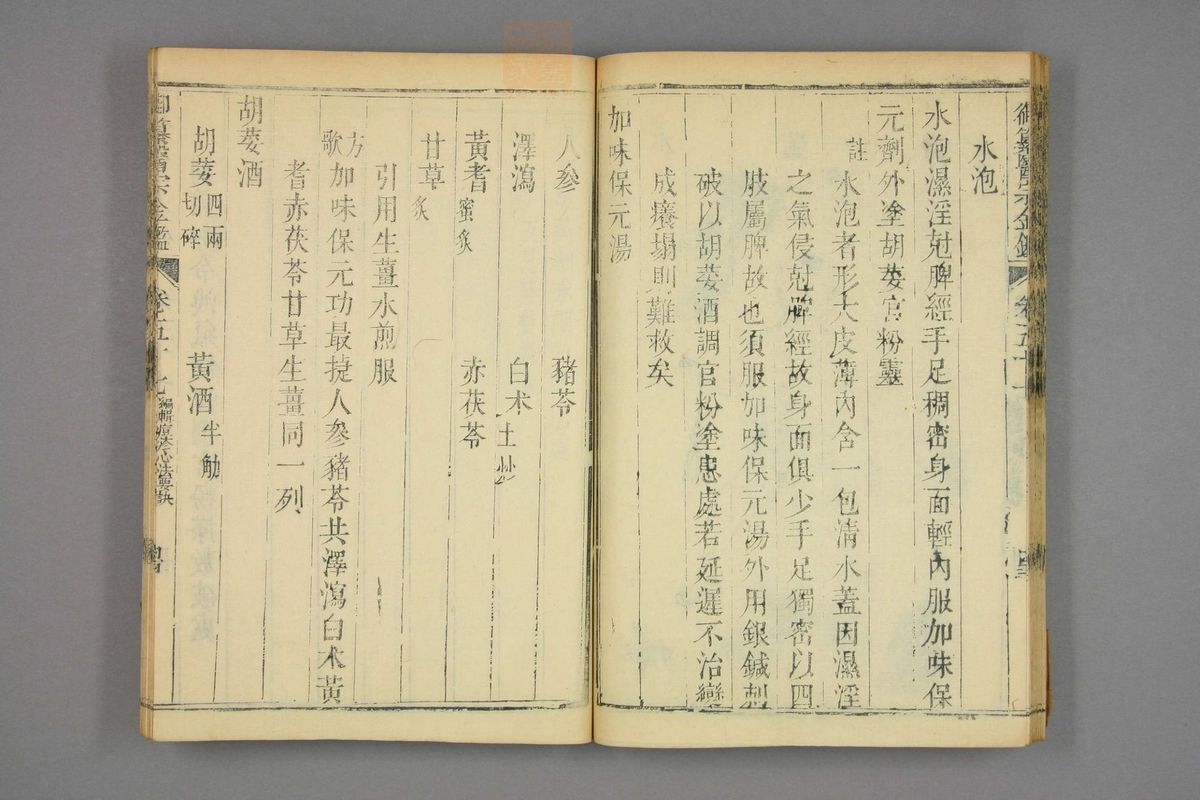 御纂醫宗金鑑
水泡
水泡濕淫尅脾經手足稠密身面輕內服加味保
元劑外塗胡荽官粉靈
註水泡者形大皮薄內含一包清水蓋因濕淫
之氣侵尅脾經故身面俱少手足獨密以四
肢屬脾故也須服加味保元湯外用銀鍼刺
破以胡荽酒調官粉塗患處若延遲不治變
成癢塌則難救矣
加味保元湯
人參 豬苓
澤瀉 白术土炒
黃耆蜜炙 赤茯苓
甘草炙
引用生薑水煎服
方歌加味保元功最捷人參豬苓共澤瀉白术黃
耆赤茯苓甘草生薑同一列
胡荽酒
胡荽四兩切碎 黃酒半觔
御纂醫宗金鑑 卷五十七 編輯痘疹心法要訣